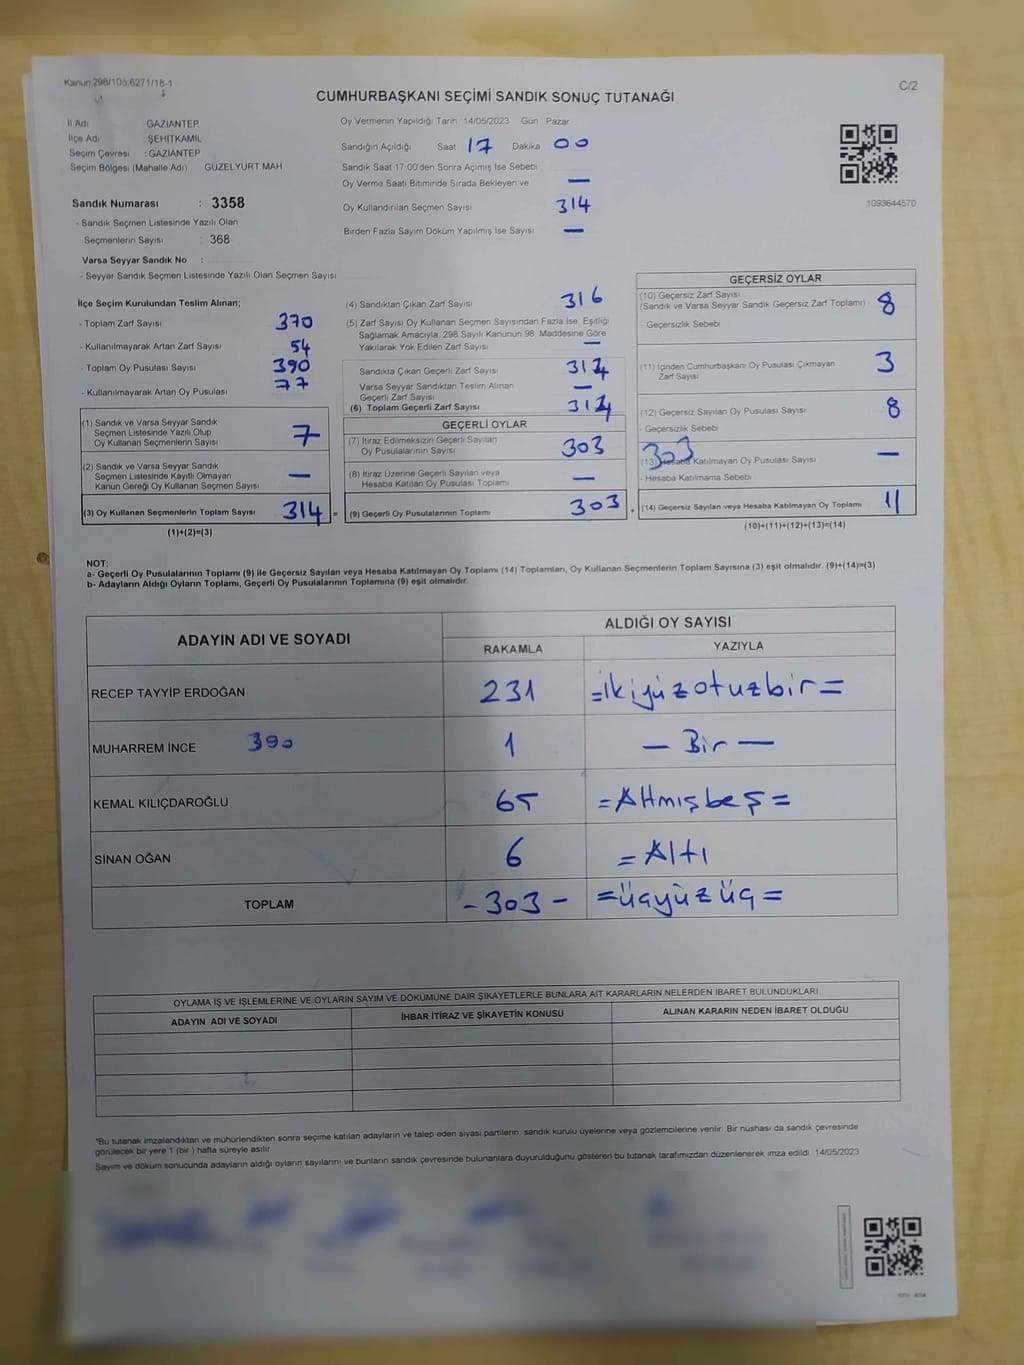 Kanun:298/105:6271/18-1
C/2
CUMHURBAŞKANI SEÇİMİ SANDIK SONUÇ TUTANAĞI
İl Adı GAZİANTEP
İlçe Adı ŞEHİTKAMİL
Seçim Çevresi : GAZİANTEP
Seçim Bölgesi (Mahalle Adı) GÜZELYURT MAH.
Sandık Numarası : 3358
- Sandık Seçmen Listesinde Yazılı Olan
Seçmenlerin Sayısı : 368
Varsa Seyyar Sandık No :
- Seyyar Sandık Seçmen Listesinde Yazılı Olan Seçmen Sayısı
Oy Vermenin Yapıldığı Tarih 14/05/2023 Gün Pazar
Sandığın Açıldığı Saat 17 Dakika 00
Sandık Saat 17.00'den Sonra Açılmış İse Sebebi
Oy Verme Saati Bitiminde Sırada Bekleyen ve —
Oy Kullandırılan Seçmen Sayısı 314
Birden Fazla Sayım Döküm Yapılmış İse Sayısı —
1093644570
İlçe Seçim Kurulundan Teslim Alınan;
- Toplam Zarf Sayısı 370
- Kullanılmayarak Artan Zarf Sayısı 54
- Toplam Oy Pusulası Sayısı 390
- Kullanılmayarak Artan Oy Pusulası 77
(1) Sandık ve Varsa Seyyar Sandık
Seçmen Listesinde Yazılı Olup
Oy Kullanan Seçmenlerin Sayısı 7
(2) Sandık ve Varsa Seyyar Sandık
Seçmen Listesinde Kayıtlı Olmayan
Kanun Gereği Oy Kullanan Seçmen Sayısı —
(3) Oy Kullanan Seçmenlerin Toplam Sayısı 314 =
(1)+(2)=(3)
(4) Sandıktan Çıkan Zarf Sayısı 316
(5) Zarf Sayısı Oy Kullanan Seçmen Sayısından Fazla İse, Eşitliği
Sağlamak Amacıyla, 298 Sayılı Kanunun 98. Maddesine Göre
Yakılarak Yok Edilen Zarf Sayısı —
Sandıkta Çıkan Geçerli Zarf Sayısı 314
Varsa Seyyar Sandıktan Teslim Alınan
Geçerli Zarf Sayısı —
(6) Toplam Geçerli Zarf Sayısı 314
GEÇERLİ OYLAR
(7) İtiraz Edilmeksizin Geçerli Sayılan
Oy Pusulalarının Sayısı 303
(8) İtiraz Üzerine Geçerli Sayılan veya
Hesaba Katılan Oy Pusulası Toplamı —
(9) Geçerli Oy Pusulalarının Toplamı 303 +
GEÇERSİZ OYLAR
(10) Geçersiz Zarf Sayısı
(Sandık ve Varsa Seyyar Sandık Geçersiz Zarf Toplamı) 8
- Geçersizlik Sebebi
(11) İçinden Cumhurbaşkanı Oy Pusulası Çıkmayan
Zarf Sayısı 3
(12) Geçersiz Sayılan Oy Pusulası Sayısı 8
- Geçersizlik Sebebi
303
(13) Hesaba Katılmayan Oy Pusulası Sayısı —
- Hesaba Katılmama Sebebi
(14) Geçersiz Sayılan veya Hesaba Katılmayan Oy Toplamı 11
(10)+(11)+(12)+(13)=(14)
NOT:
a- Geçerli Oy Pusulalarının Toplamı (9) ile Geçersiz Sayılan veya Hesaba Katılmayan Oy Toplamı (14) Toplamları, Oy Kullanan Seçmenlerin Toplam Sayısına (3) eşit olmalıdır. (9)+(14)=(3)
b- Adayların Aldığı Oyların Toplamı, Geçerli Oy Pusulalarının Toplamına (9) eşit olmalıdır.
ADAYIN ADI VE SOYADI
ALDIĞI OY SAYISI
RAKAMLA YAZIYLA
RECEP TAYYİP ERDOĞAN 231 =ikiyüzotuzbir=
MUHARREM İNCE 390 1 — Bir —
KEMAL KILIÇDAROĞLU 65 =Altmışbeş=
SİNAN OĞAN 6 =Altı
TOPLAM -303- =üçyüzüç=
OYLAMA İŞ VE İŞLEMLERİNE VE OYLARIN SAYIM VE DÖKÜMÜNE DAİR ŞİKAYETLERLE BUNLARA AİT KARARLARIN NELERDEN İBARET BULUNDUKLARI
ADAYIN ADI VE SOYADI İHBAR İTİRAZ VE ŞİKAYETİN KONUSU ALINAN KARARIN NEDEN İBARET OLDUĞU
"Bu tutanak imzalandıktan ve mühürlendikten sonra seçime katılan adayların ve talep eden siyasi partilerin sandık kurulu üyelerine veya gözlemcilerine verilir. Bir nüshası da sandık çevresinde
görülecek bir yere 1 (bir) hafta süreyle asılır.
Sayım ve döküm sonucunda adayların aldığı oyların sayılarını ve bunların sandık çevresinde bulunanlara duyurulduğunu gösteren bu tutanak tarafımızdan düzenlenerek imza edildi. 14/05/2023